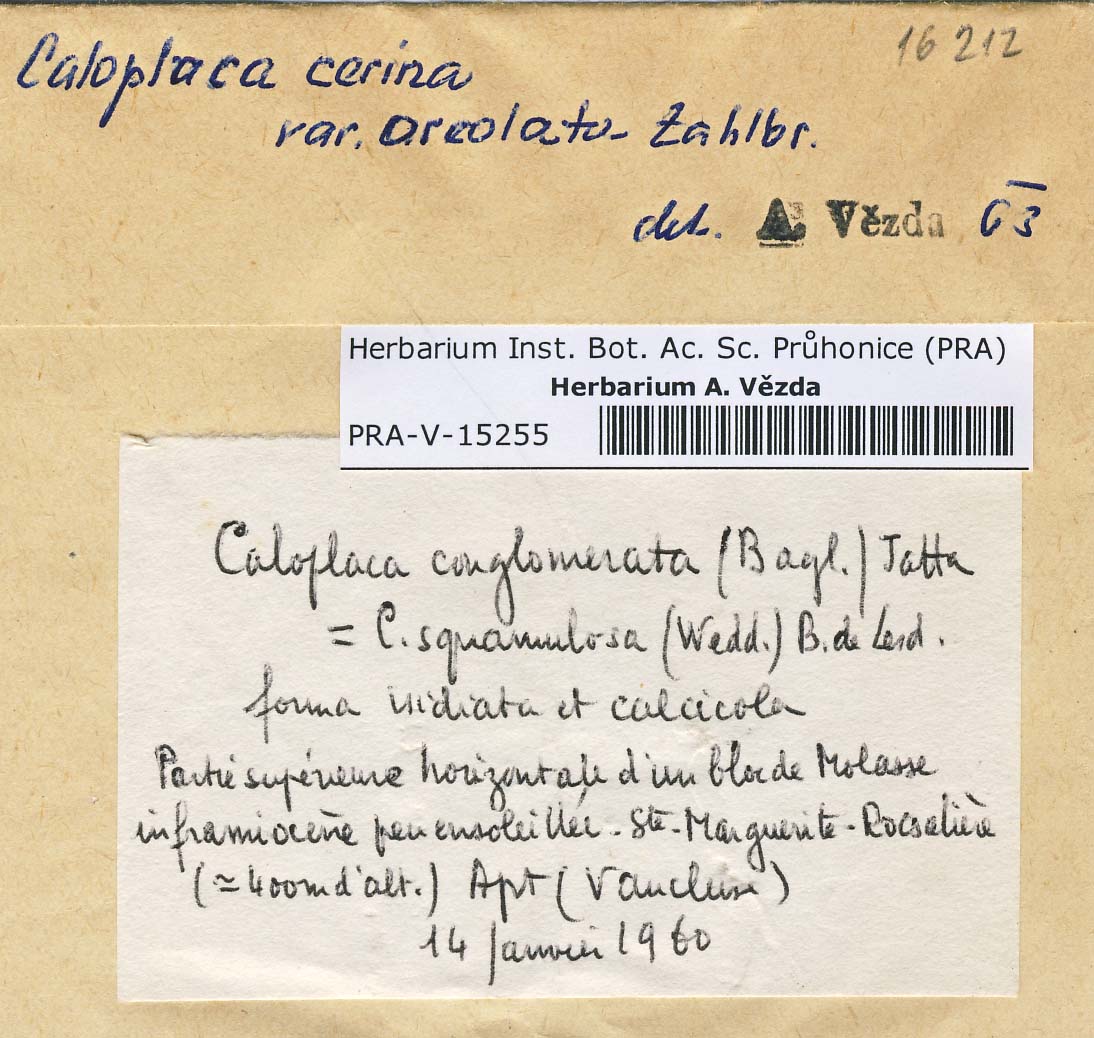 16 212
Caloplaca cerina
var. areolata Zahlbr.
det. A. Vězda 63
Herbarium Inst. Bot. Ac. Sc. Průhonice (PRA)
Herbarium A. Vězda
PRA-V-15255
Caloplaca conglomerata (Bagl.) Jatta
= C. squamulosa (Wedd.) B. de Lesd.
forma isidiata et calcicola
Partie supérieure horizontale d'un bloc de Molasse
inframiocène peu ensoleillée - Ste-Marguerite - Rocsalière
(≃ 400m d'alt.) Apt (Vaucluse)
14 Janvier 1960